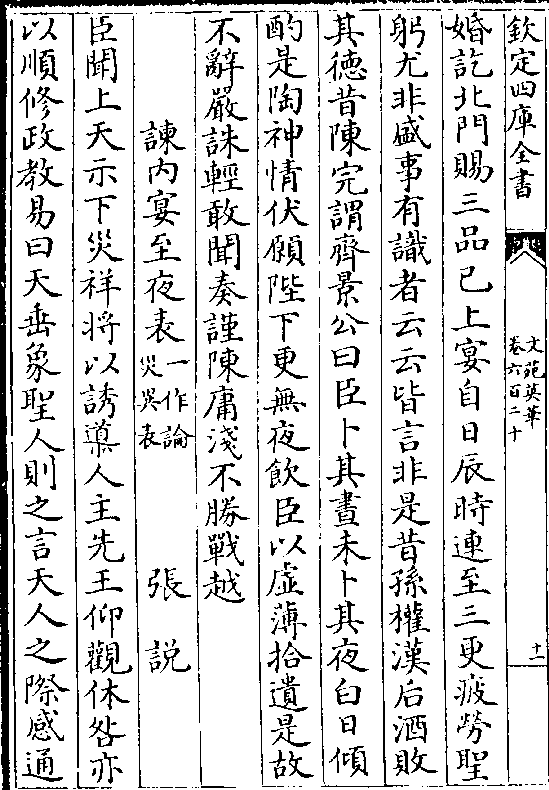 欽定四庫全書
文苑英華
卷六百二十
十一
婚訖北門賜三品已上宴自日辰時連至三更疲勞聖
躬尤非盛事有識者云云皆言非是昔孫權漢后酒敗
其德昔陳完謂齊景公曰臣卜其晝未卜其夜白日傾
酌是陶神情伏願陛下更無夜飲臣以虛薄拾遺是故
不辭嚴誅輕敢聞奏謹陳庸淺不勝戰越
諫内宴至夜表一作論災異表 張説
臣聞上天示下災祥將以誘導人主先王仰觀休咎亦
以順修政教易曰天垂象聖人則之言天人之際感通